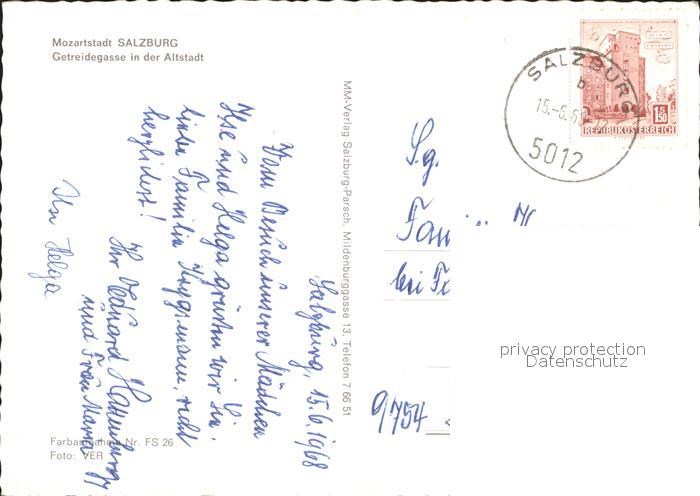 Mozartstadt SALZBURG
Getreidegasse in der Altstadt
Salzburg, 15.6.1968
Vom Besuch unserer Mädchen
Ilse und Helga grüßen wir Sie,
liebe Familie recht
herzlichst!
Ihr
und Frau Maria
Helga
Farbaufnahme Nr. FS 26
Foto: VER
MM-Verlag Salzburg-Parsch, Mildenburggasse 13, Telefon 7 66 51
SALZBURG
b
15.-6.68
5012
1.50
REPUBLIK ÖSTERREICH
Sg.
Fam
bei Fa
9754
privacy protection
Datenschutz